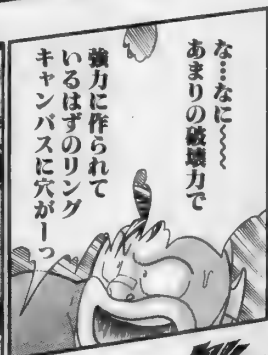 な…なに〜〜
あまりの破壊力で
強力に作られて
いるはずのリング
キャンバスに穴がーっ